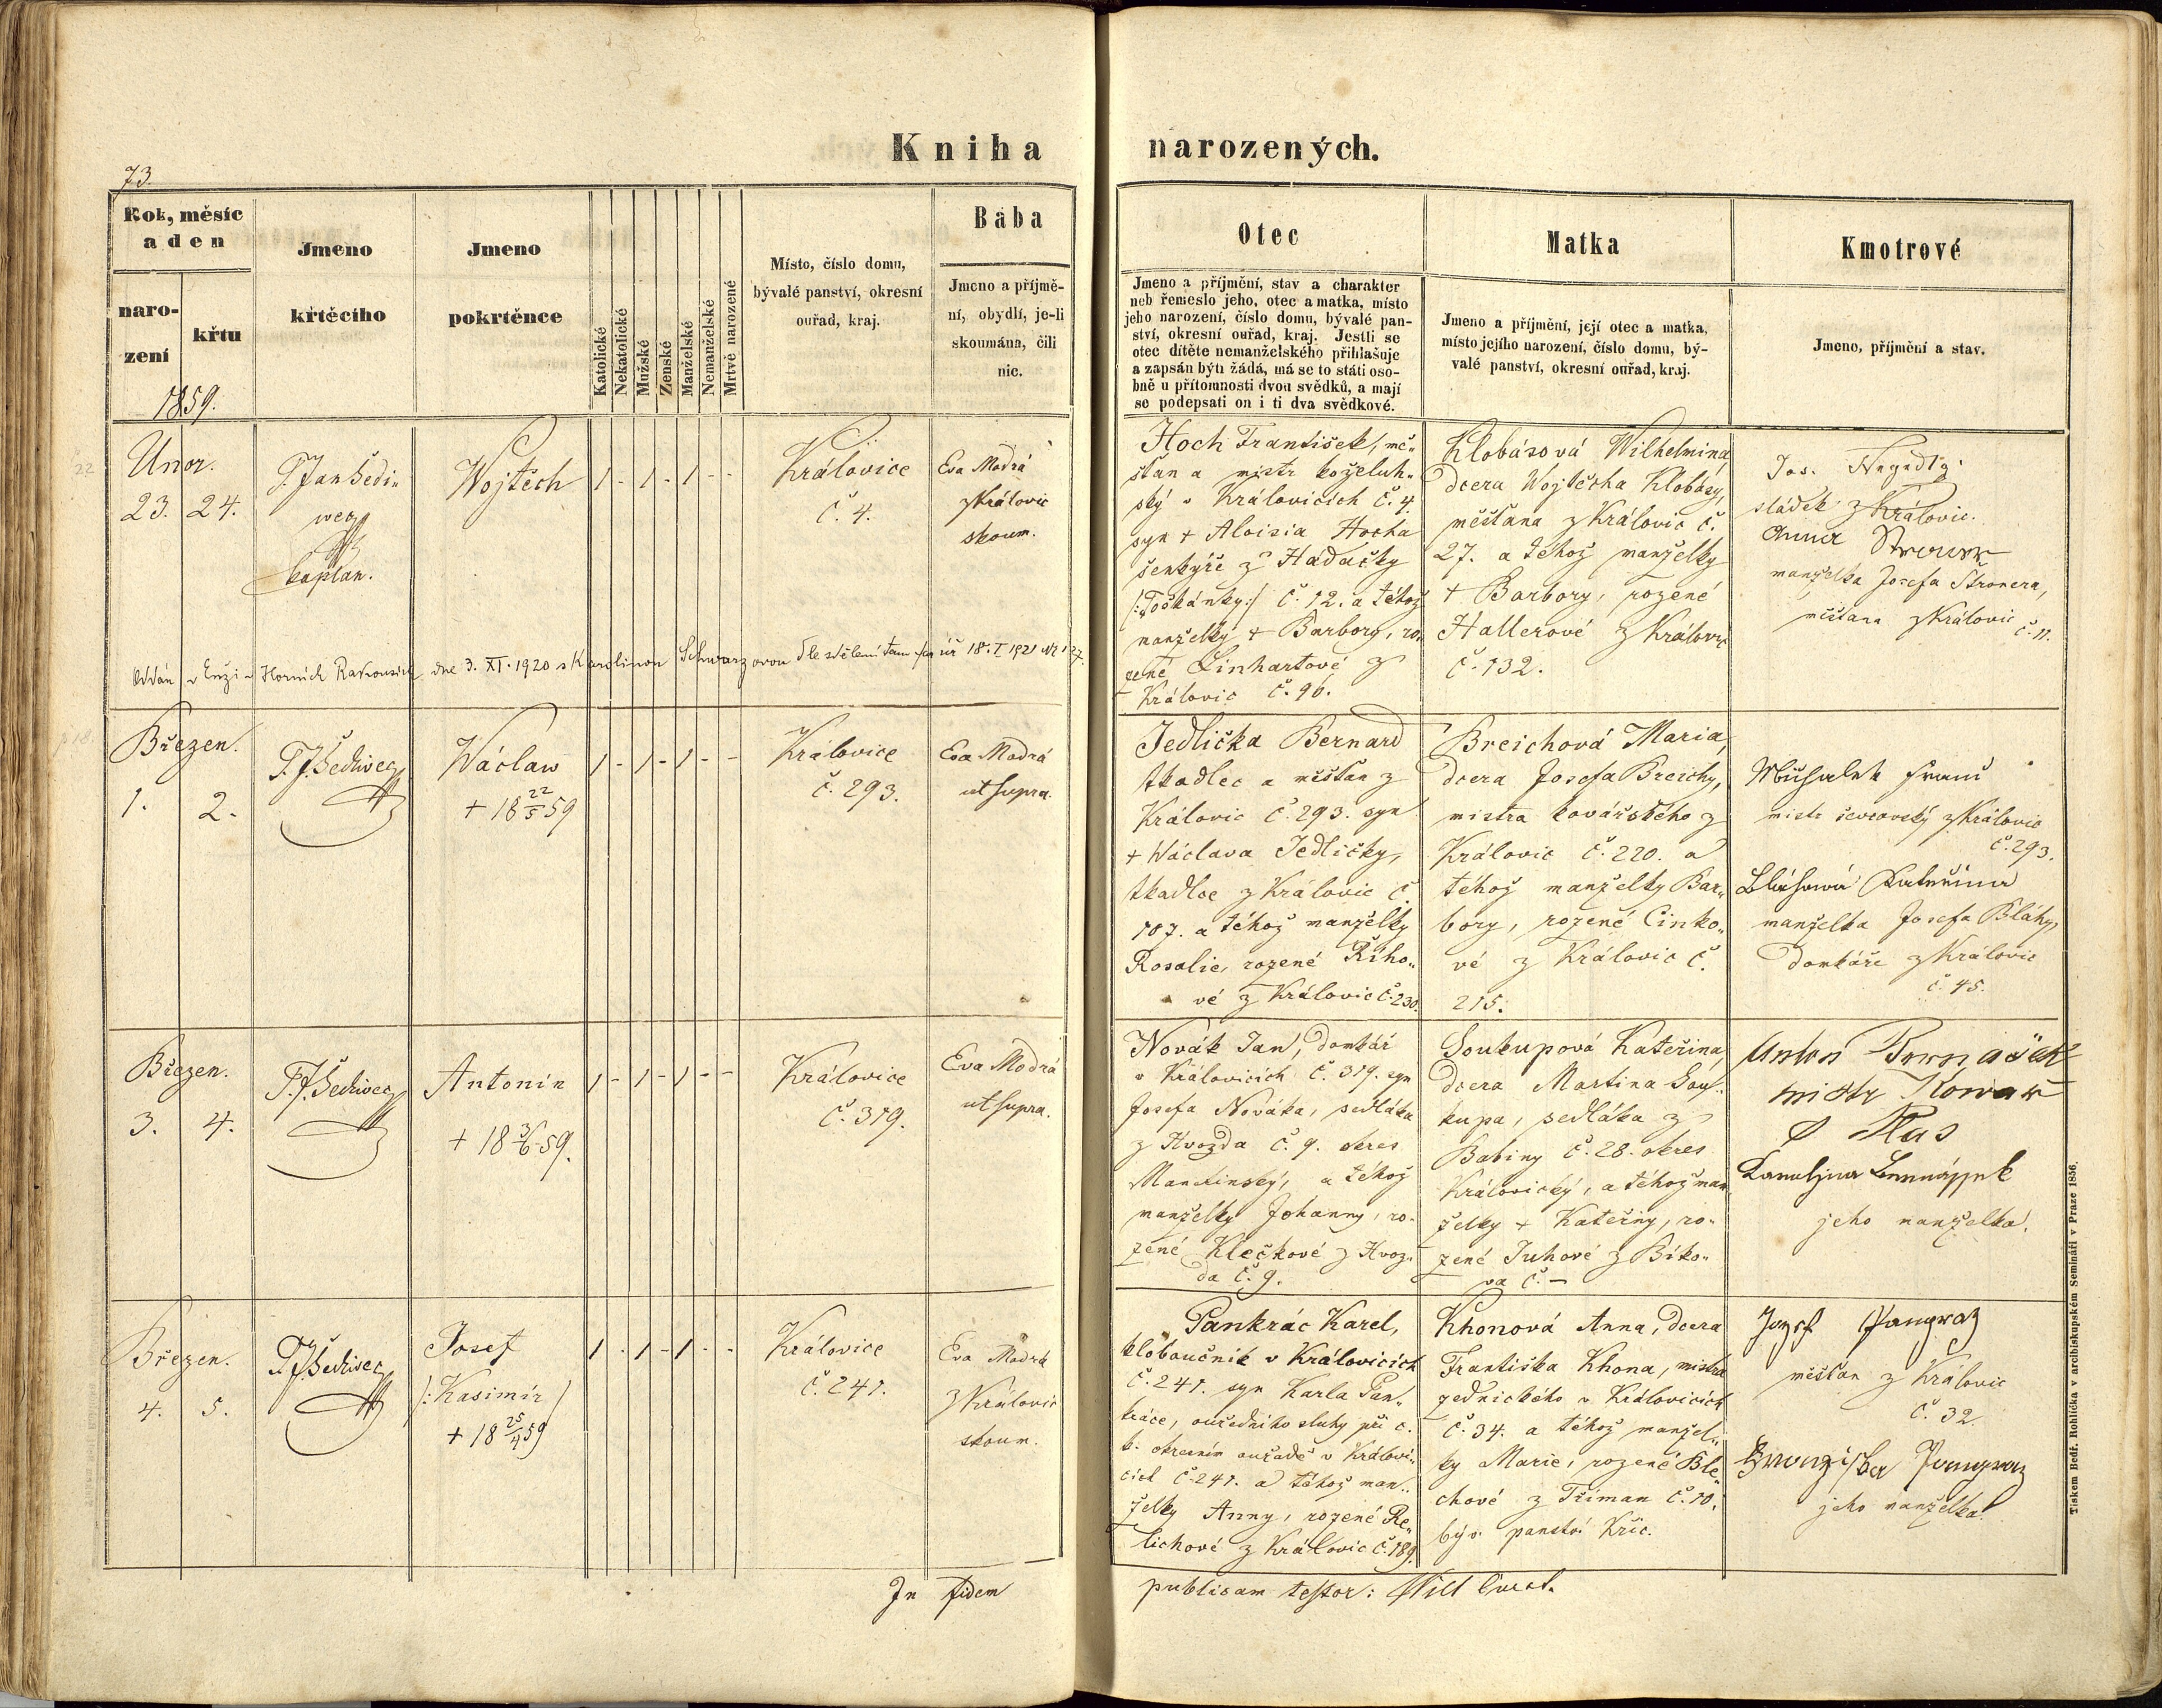 Kniha narozených.
73.
Rok, měsíc
a den
naro-
zení
křtu
1859.
Jmeno
křtěcího
Jmeno
pokrtěnce
Katolické
Nekatolické
Mužské
Ženské
Manželské
Nemanželské
Mrtvě narozené
Místo, číslo domu,
bývalé panství, okresní
ouřad, kraj.
Bába
Jmeno a příjmě-
ní, obydlí, je-li
skoumána, čili
nic.
Otec
Jmeno a příjmění, stav a charakter
neb řemeslo jeho, otec a matka, místo
jeho narození, číslo domu, bývalé pan-
ství, okresní ouřad, kraj. Jestli se
otec dítěte nemanželského přihlašuje
a zapsán býti žádá, má se to státi oso-
bně u přítomnosti dvou svědků, a mají
se podepsati on i ti dva svědkové.
Matka
Jmeno a příjmění, její otec a matka,
místo jejího narození, číslo domu, bý-
valé panství, okresní ouřad, kraj.
Kmotrové
Jmeno, příjmění a stav.
Unor.
23. 24.
P. Jan Šedi-
wec
kaplan.
Wojtěch
1 - 1 - 1 - -
Královice
č. 4.
Eva Modrá
z Královic
skoum.
Hoch František, mě-
šťan a mistr koželuh-
ský v Královicích č. 4.
syn + Aloisia Hocha
šenkýře z Hadačky
č. 12. a téhož
manželky + Barbory, ro-
zené Linhartové z
Královic č. 96.
Klobásová Wilhelmina
dcera Wojtěcha Klobásy,
měšťana z Královic č.
27. a téhož manželky
+ Barbory, rozené
Hallerové z Královic
č. 132.
Jos.
sládek z Královic.
Anna
manželka Josefa Štronera,
měšťana z Královic
č. 11.
Oddán v Enži v Horních Rakousích dne 3. XI. 1920 s Karolinou Schwarzovou dle sdělení tam. far. úř. 18. I 1921
Březen.
1. 2.
P. J. Šediwec
Wáclaw
+ 18 22/5 59
1 - 1 - 1 - -
Královice
č. 293.
Eva Modrá
ut supra.
Jedlička Bernard
tkadlec a měšťan z
Královic č. 293. syn
+ Wáclava Jedličky,
tkadlce z Královic č.
107. a téhož manželky
Rosalie, rozené Řího-
vé z Královic č. 230.
Breichová Maria,
dcera Josefa Breichy,
mistra kovářského z
Královic č. 220. a
téhož manželky Bar-
bory, rozené Cinko-
vé z Královic č.
215.
mistr ševcovský z Královic
č. 293.
Bláhowá Kateřina
manželka Josefa Bláhy,
domkáře z Královic
č. 45.
Březen.
3. 4.
P. J. Šediwec
Antonín
+ 18 3/6 59.
1 - 1 - 1 - -
Královice
č. 319.
Eva Modrá
ut supra.
Novák Jan, domkář
v Královicích č. 319. syn
Josefa Nováka, sedláka
z Hvozda č. 9. okres
Manetinský, a téhož
manželky Johanny, ro-
zené Klečkové z Hvoz-
da č. 9.
Soukupová Kateřina,
dcera Martina Sou-
kupa, sedláka z
Babiny č. 28. okres
Královický, a téhož man-
želky + Kateřiny, ro-
zené Juhové z Bíko-
va č. –
Anton
mistr Kowař
Karolina
jeho manželka.
Březen.
4. 5.
P. J. Šediwec
Josef
/: Kasimír
+ 18 25/4 59
1 - 1 - 1 - -
Královice
č. 241.
Eva Modrá
z Královic
skoum.
Pankrác Karel,
kloboučník v Královicích
č. 241. syn Karla Pan-
kráce, ouředního sluhy při c.
k. okresním ouřadě v Královi-
cích č. 241. a téhož man-
želky Anny, rozené Re-
lichové z Královic č. 189.
Khonová Anna, dcera
Františka Khona, mistra
zednického v Královicích
č. 34. a téhož manžel-
ky Marie, rozené Ble-
chové z Tříman č. 10.
býv. panství Křic.
Jozef Pangraz
měšťan z Královic
č. 32.
Pangraz
jeho manželka.
In fidem publicam testor:
Tiskem Bedř. Rohlíčka v arcibiskupském Semináři v Praze 1856.